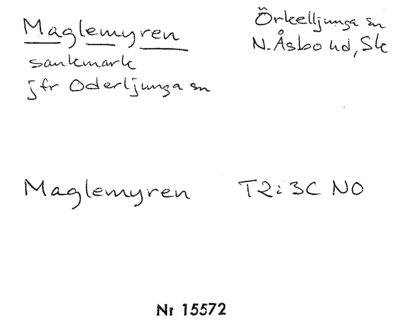 Maglemyren
Örkelljunga sn
sankmark
N. Åsbo hd, Sk
jfr Oderljunga sn
Maglemyren T2i3C NO
Nr 15572